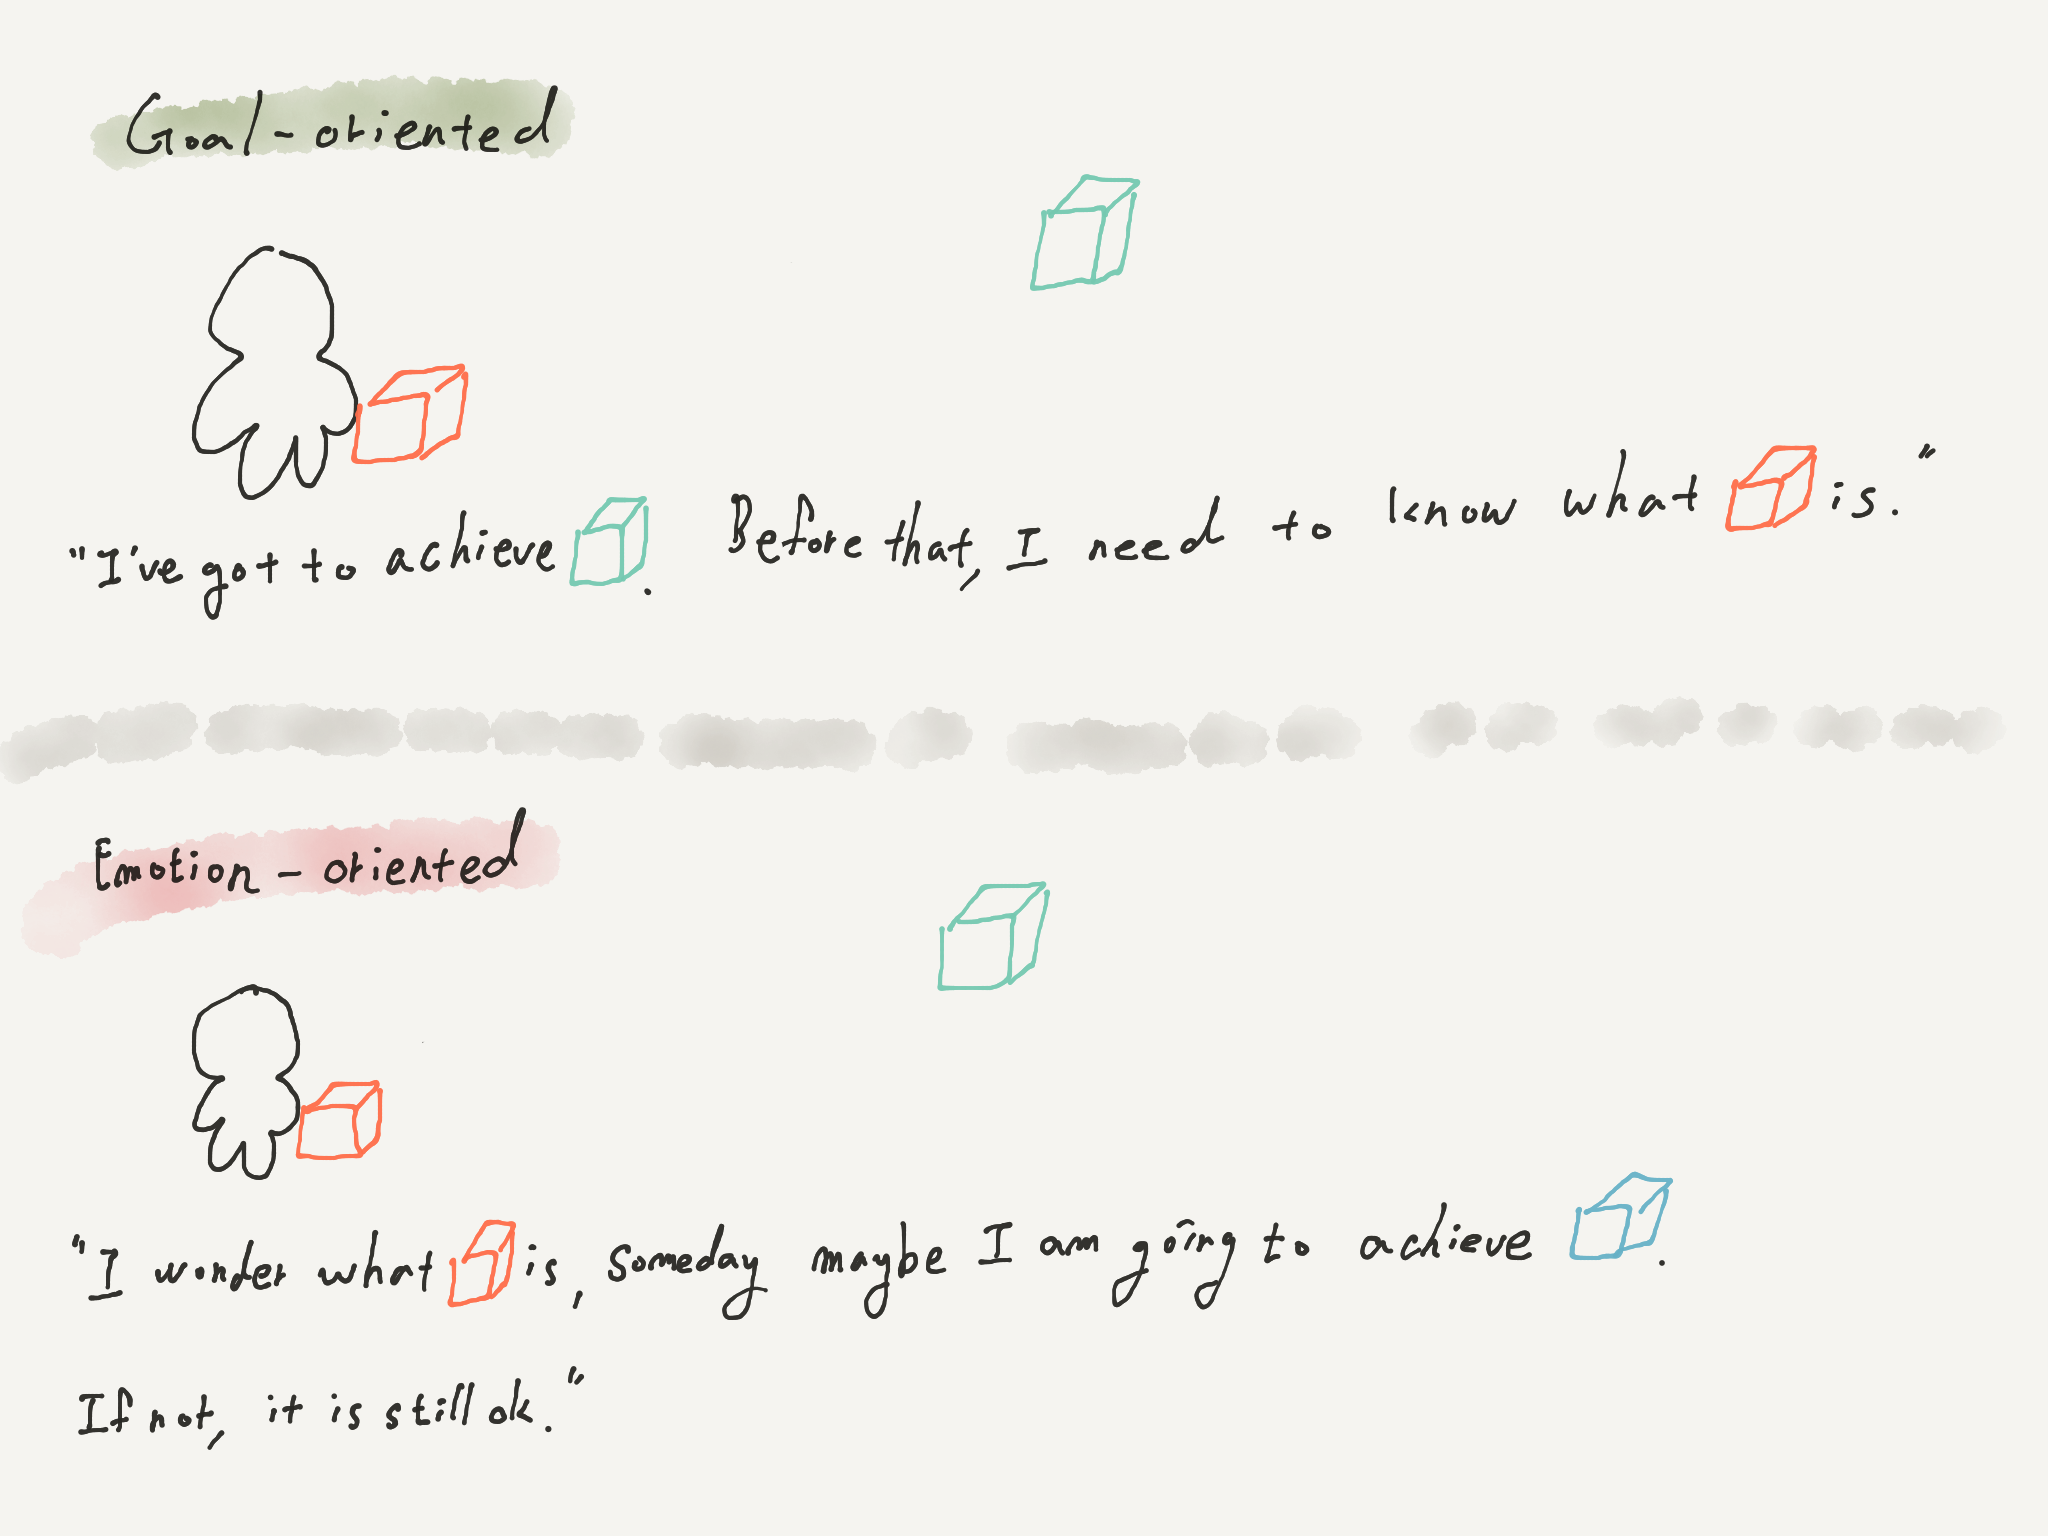 Goal-oriented
"I've got to achieve . Before that, I need to know what is."
Emotion-oriented
"I wonder what is, someday maybe I am going to achieve .
If not, it is still ok."